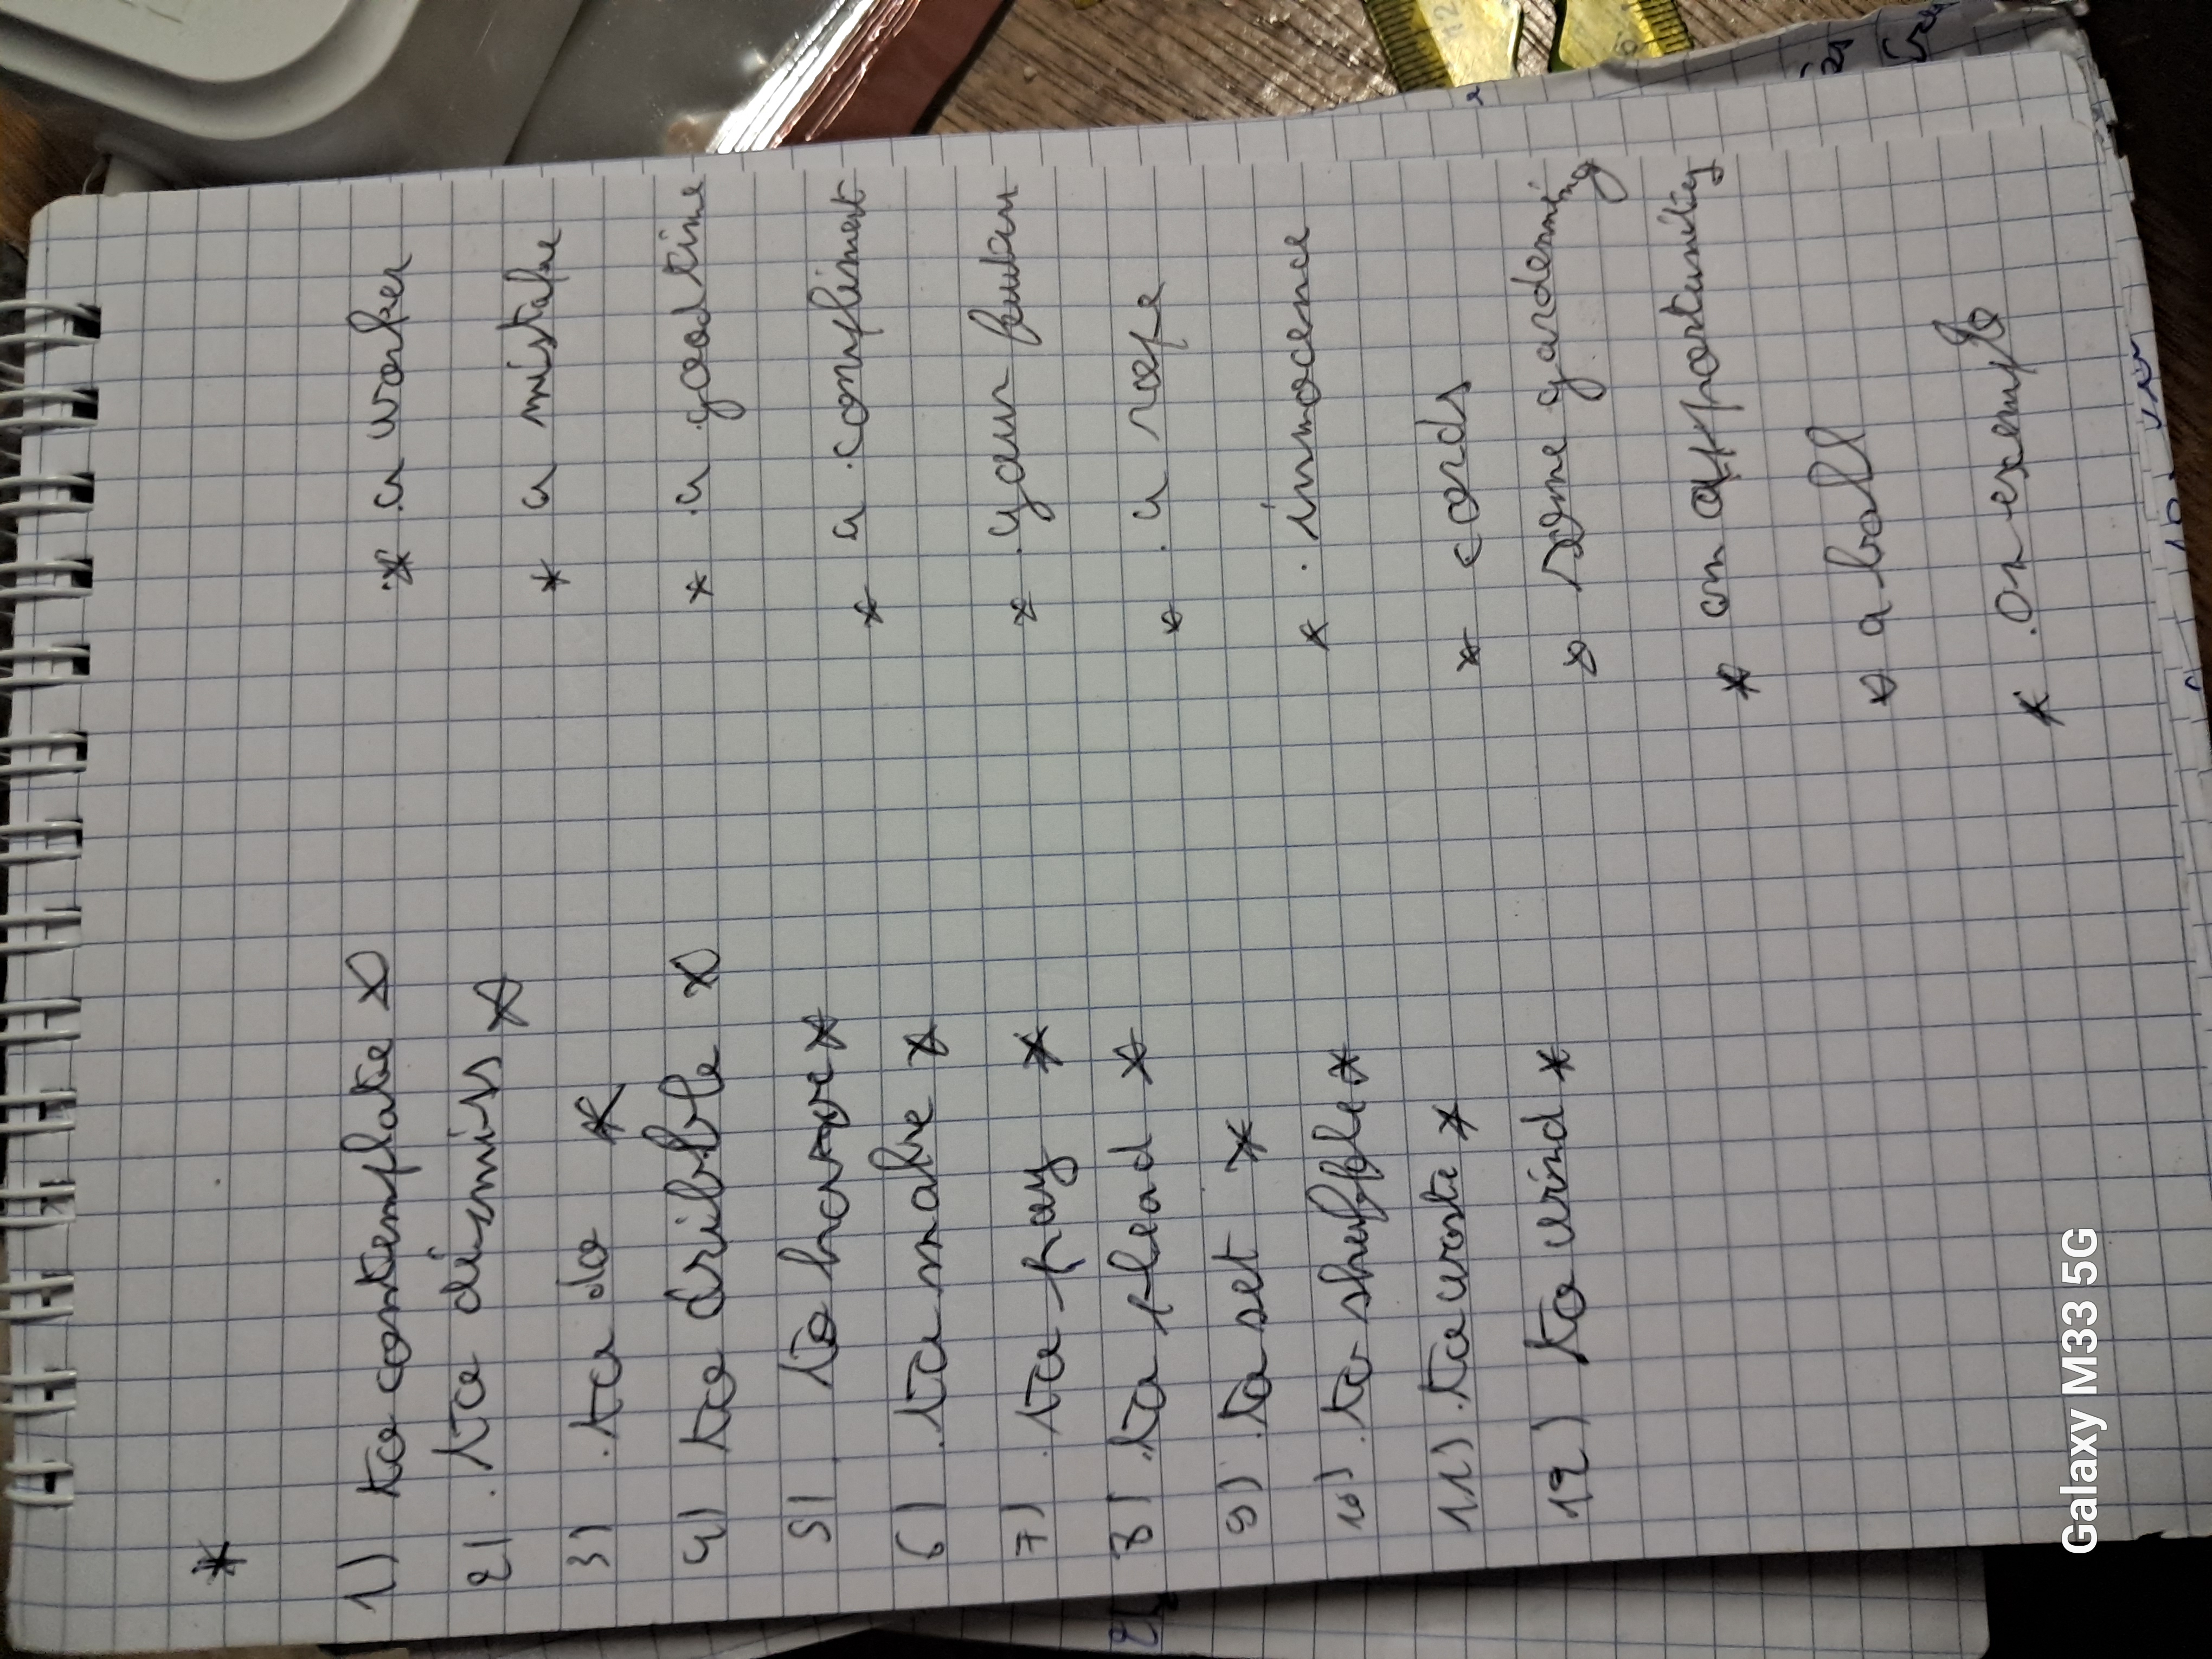 *
1) to contemplate *
2) to dismiss *
3) to do *
4) to dribble *
5) to hover *
6) to make *
7) to pay *
8) to plead *
9) to set *
10) to shuffle *
11) to waste *
12) to wind *
* a worker
* a mistake
* a good time
* a compliment
* your
* a rope
* innocence
* cards
* some gardenning
* an opportunity
* a ball
* an exemple
Galaxy M33 5G